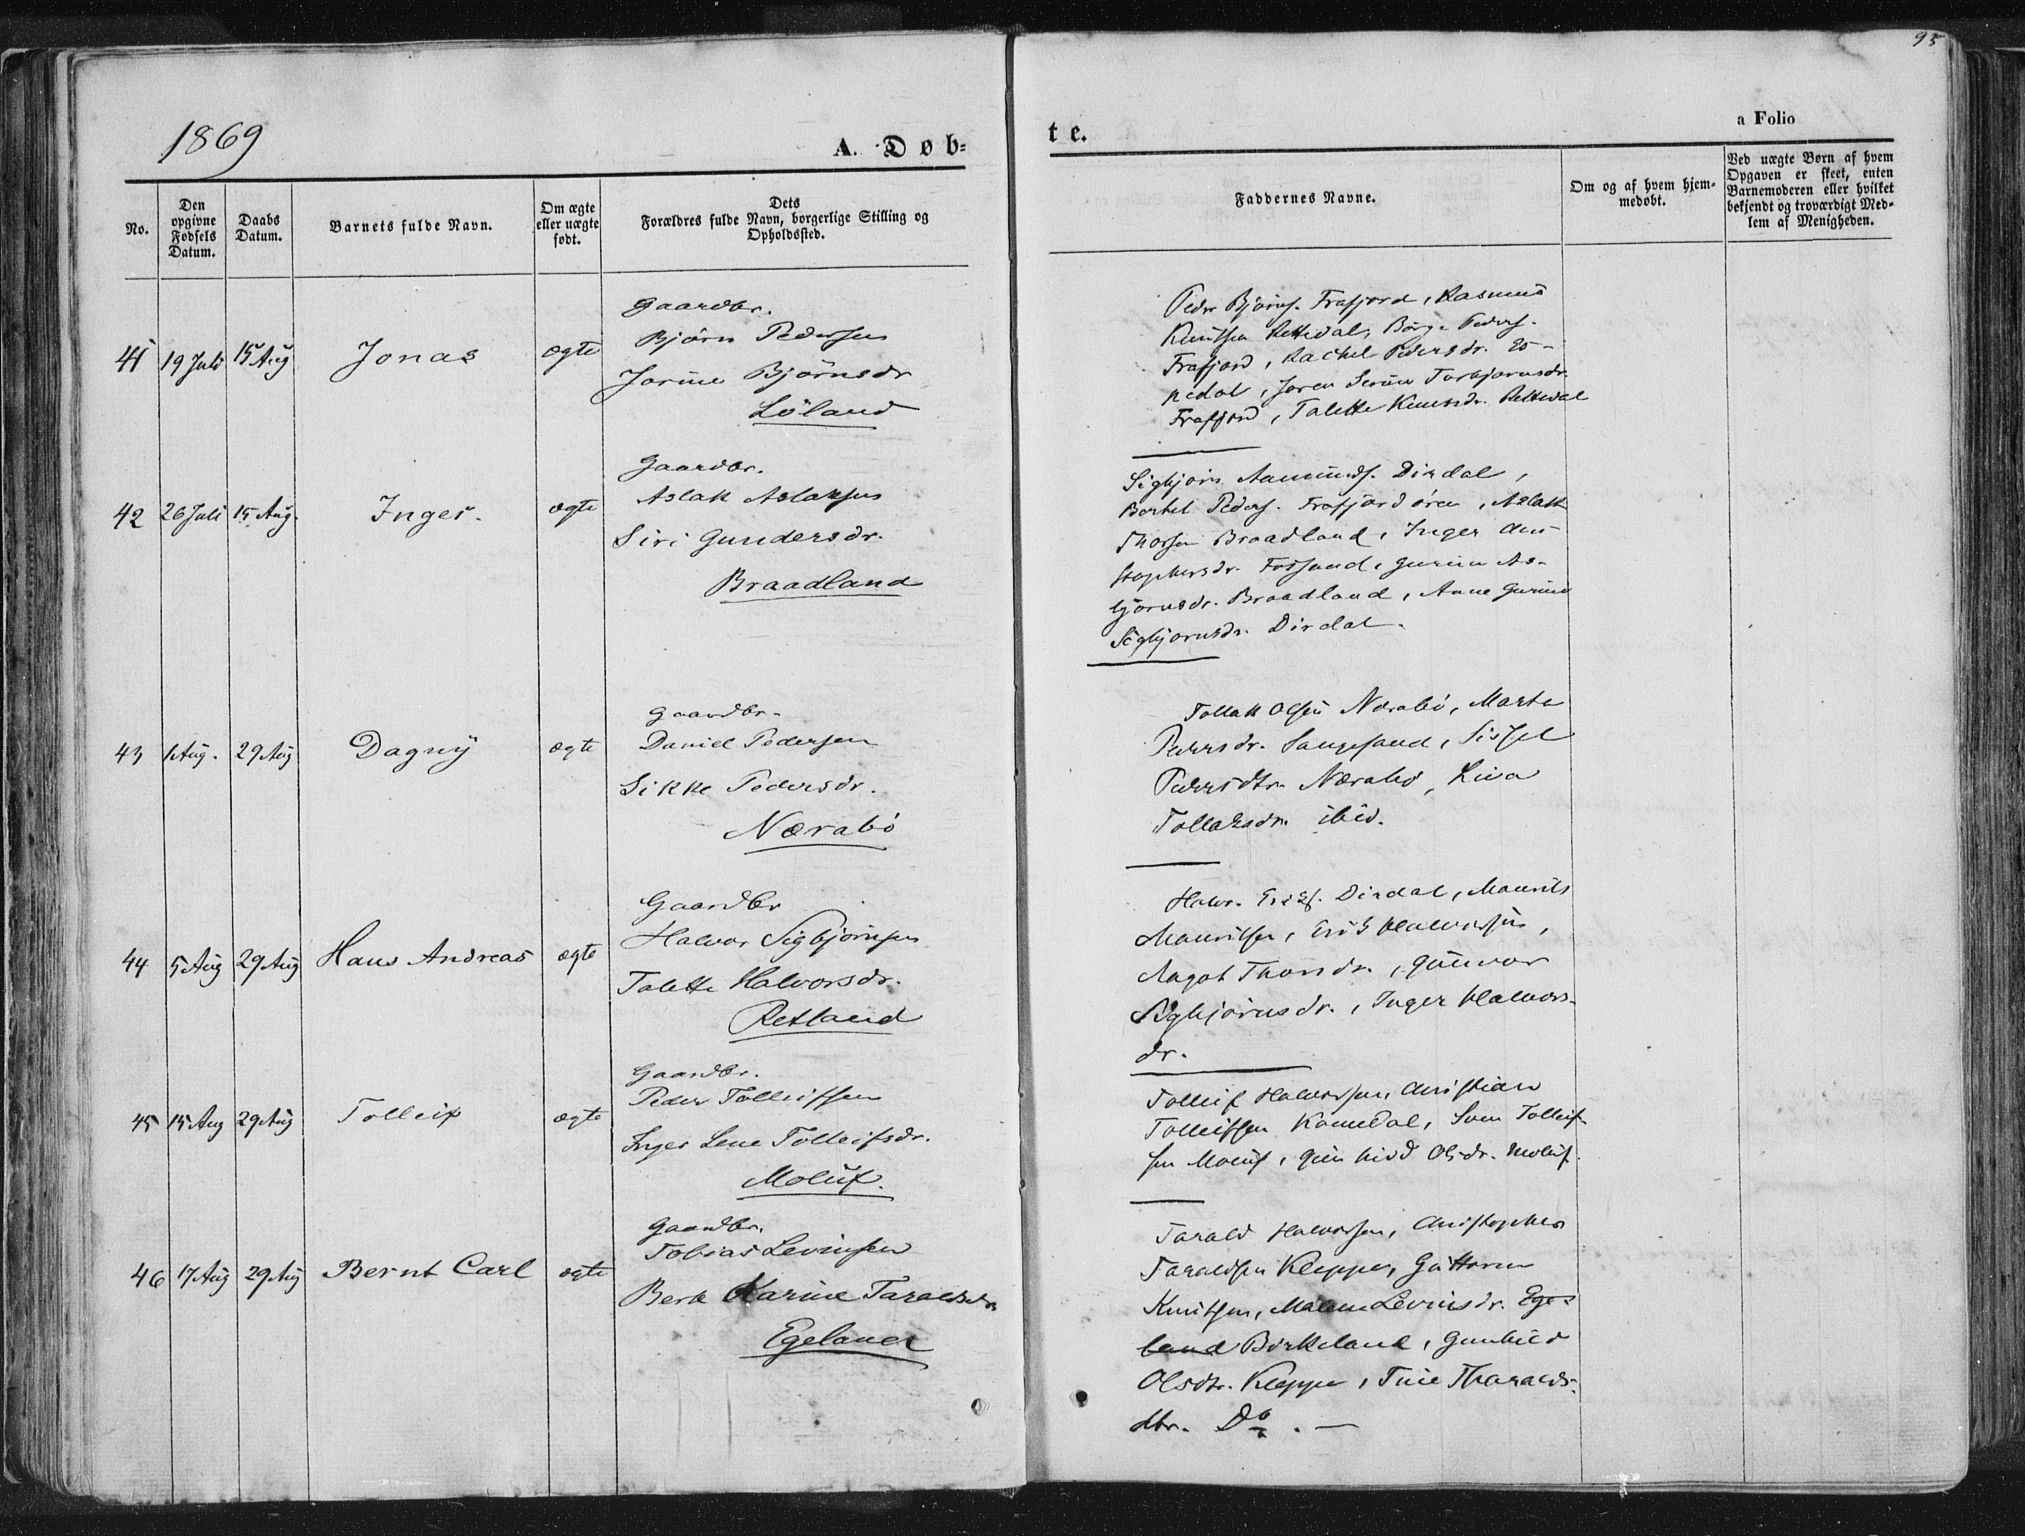 95
1869
A. Døb-
te.
a Folio
No.
Den
opgivne
Fødsels
Datum.
Daabs
Datum.
Barnets fulde Navn.
Om ægte
eller uægte
født.
Dets
Forældres fulde Navn, borgerlige Stilling og
Opholdssted.
Faddernes Navne.
Om og af hvem hjem-
medøbt.
Ved uægte Børn af hvem
Opgaven er skeet, enten
Barnemoderen eller hvilket
bekjendt og troværdigt Med-
lem af Menigheden.
41 19 Juli 15 Aug Jonas ægte
Gaardbr.
Bjørn Pedersen
Jorine Bjørnsdr
Løland
Peder Bjørns. Frafjord, Rasmus
Knutsen Rettedal, Børge Peders.
Frafjord, Rachel Pedersdr. Es-
pedal, Joren Serine Torbjørnsdr.
Frafjord, Talette Knutsdr. Rettedal
42 26 Juli 15 Aug. Inger. ægte
Gaardbr.
Aslak Aslaksen
Siri Gundersdr.
Braadland
Sigbjørn Aamunds. Dirdal,
Bertel Peders. Frafjordøren, Aslak
Thorsen Braadland, Inger Chri-
stophersdr. Forsand, Gurine As-
bjørnsdr. Braadland, Anne Gurine
Sigbjørnsdr. Dirdal.
43 1 Aug. 29 Aug Dagny ægte
Gaardbr.
Daniel Pedersen
Sikke Pedersdr.
Nærabø
Tollak Olsen Nærabø, Marte
Pedersdr. Sangesand, Sissel
Pedersdtr. Nærabø, Lisa
Tollaksdr. ibid.
44 5 Aug 29 Aug Hans Andreas ægte
Gaardbr
Halvor Sigbjørnsen
Talette Halvorsdr.
Retland
Halvr. Eriks. Dirdal, Maurits
Mauritsen, Erik Halvorsen,
Magot Thorsdr., Gunvor
Sigbjørnsdr., Inger Halvors-
dr.
45 15 Aug 29 Aug Tolleif ægte
Gaardbr.
Peder Tolleifsen
Inger Lene Tolleifsdr.
Moluf.
Tolleif Halvorsen, Christian
Tolleifsen Komedal, Sven Tolleif-
sen Moluf, Gunhild Olsdr. Moluf.
46 17 Aug 29 Aug Bernt Carl ægte
Gaardbr.
Tobias Levinsen
Berte Karine Taraldsdr.
Egeland
Tarald Halvorsen, Christopher
Taraldsen Kleppe, Guttorm
Knutsen, Malene Levinsdr. Ege-
land Birkeland, Gunhild
Olsdtr. Kleppe, Tine Tharalds-
dtr. Do. —